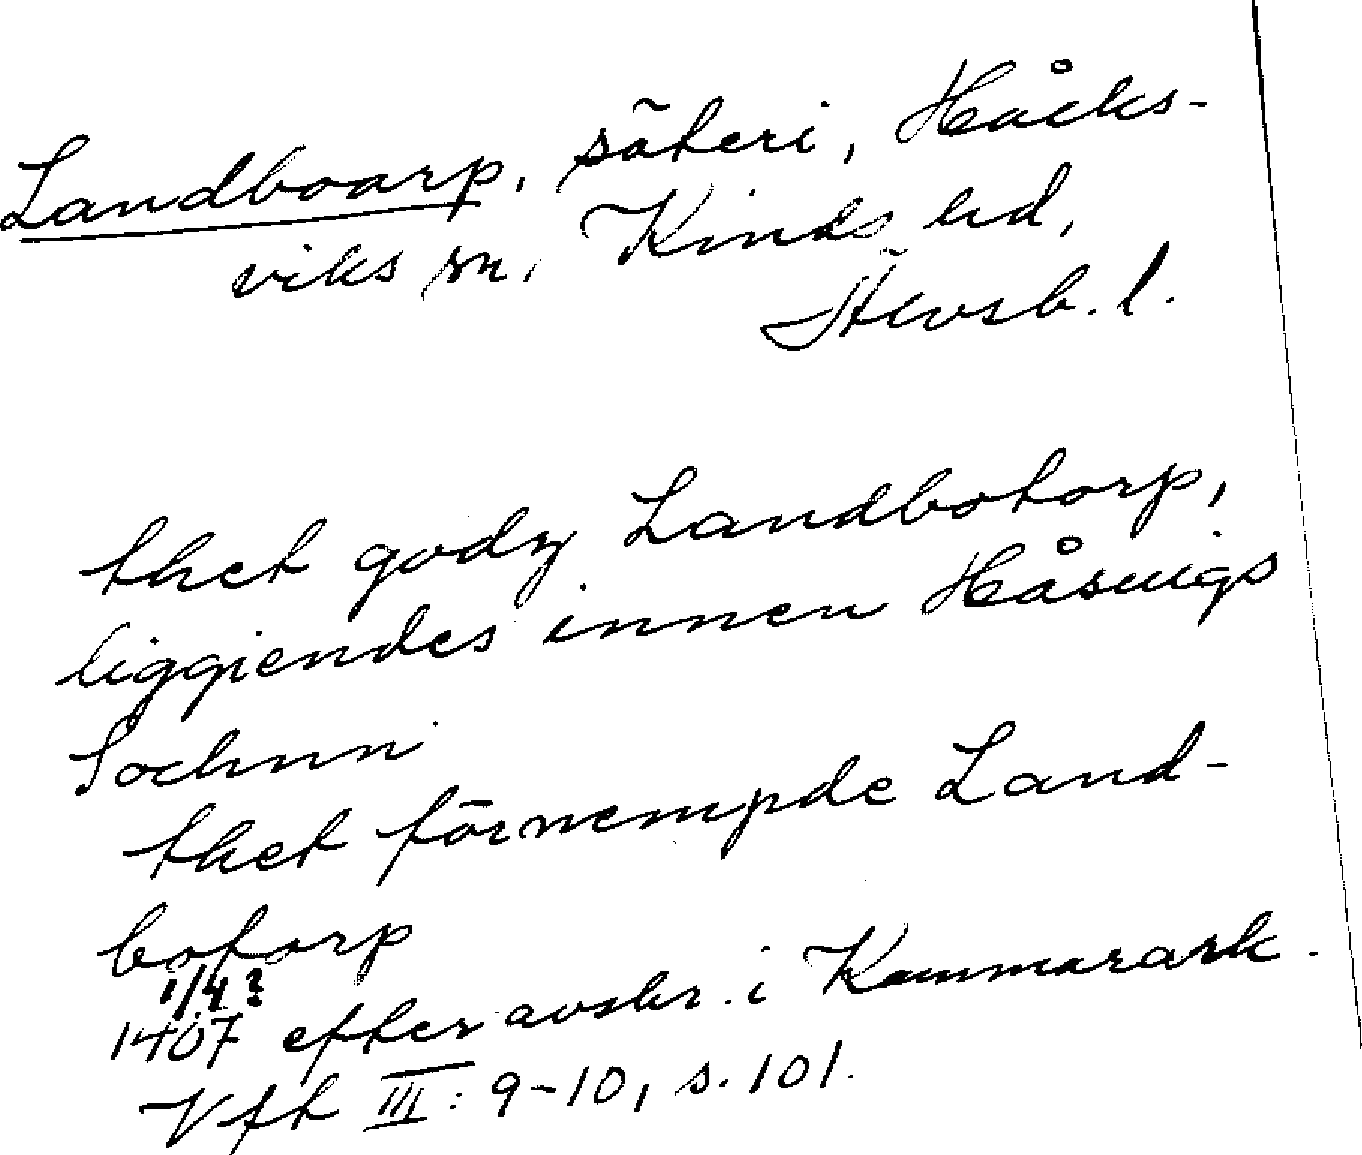 Landboarp, säteri, Håcks-
viks sn, Kinds hd,
Älvsb. l.
thet godz Landbotorp,
liggiendes innen Håsuigs
Sochnn
thet förnempde Land-
botorp
1/4?
1407 efter avskr. i Kammarark.
Vft III: 9-10, s. 101.